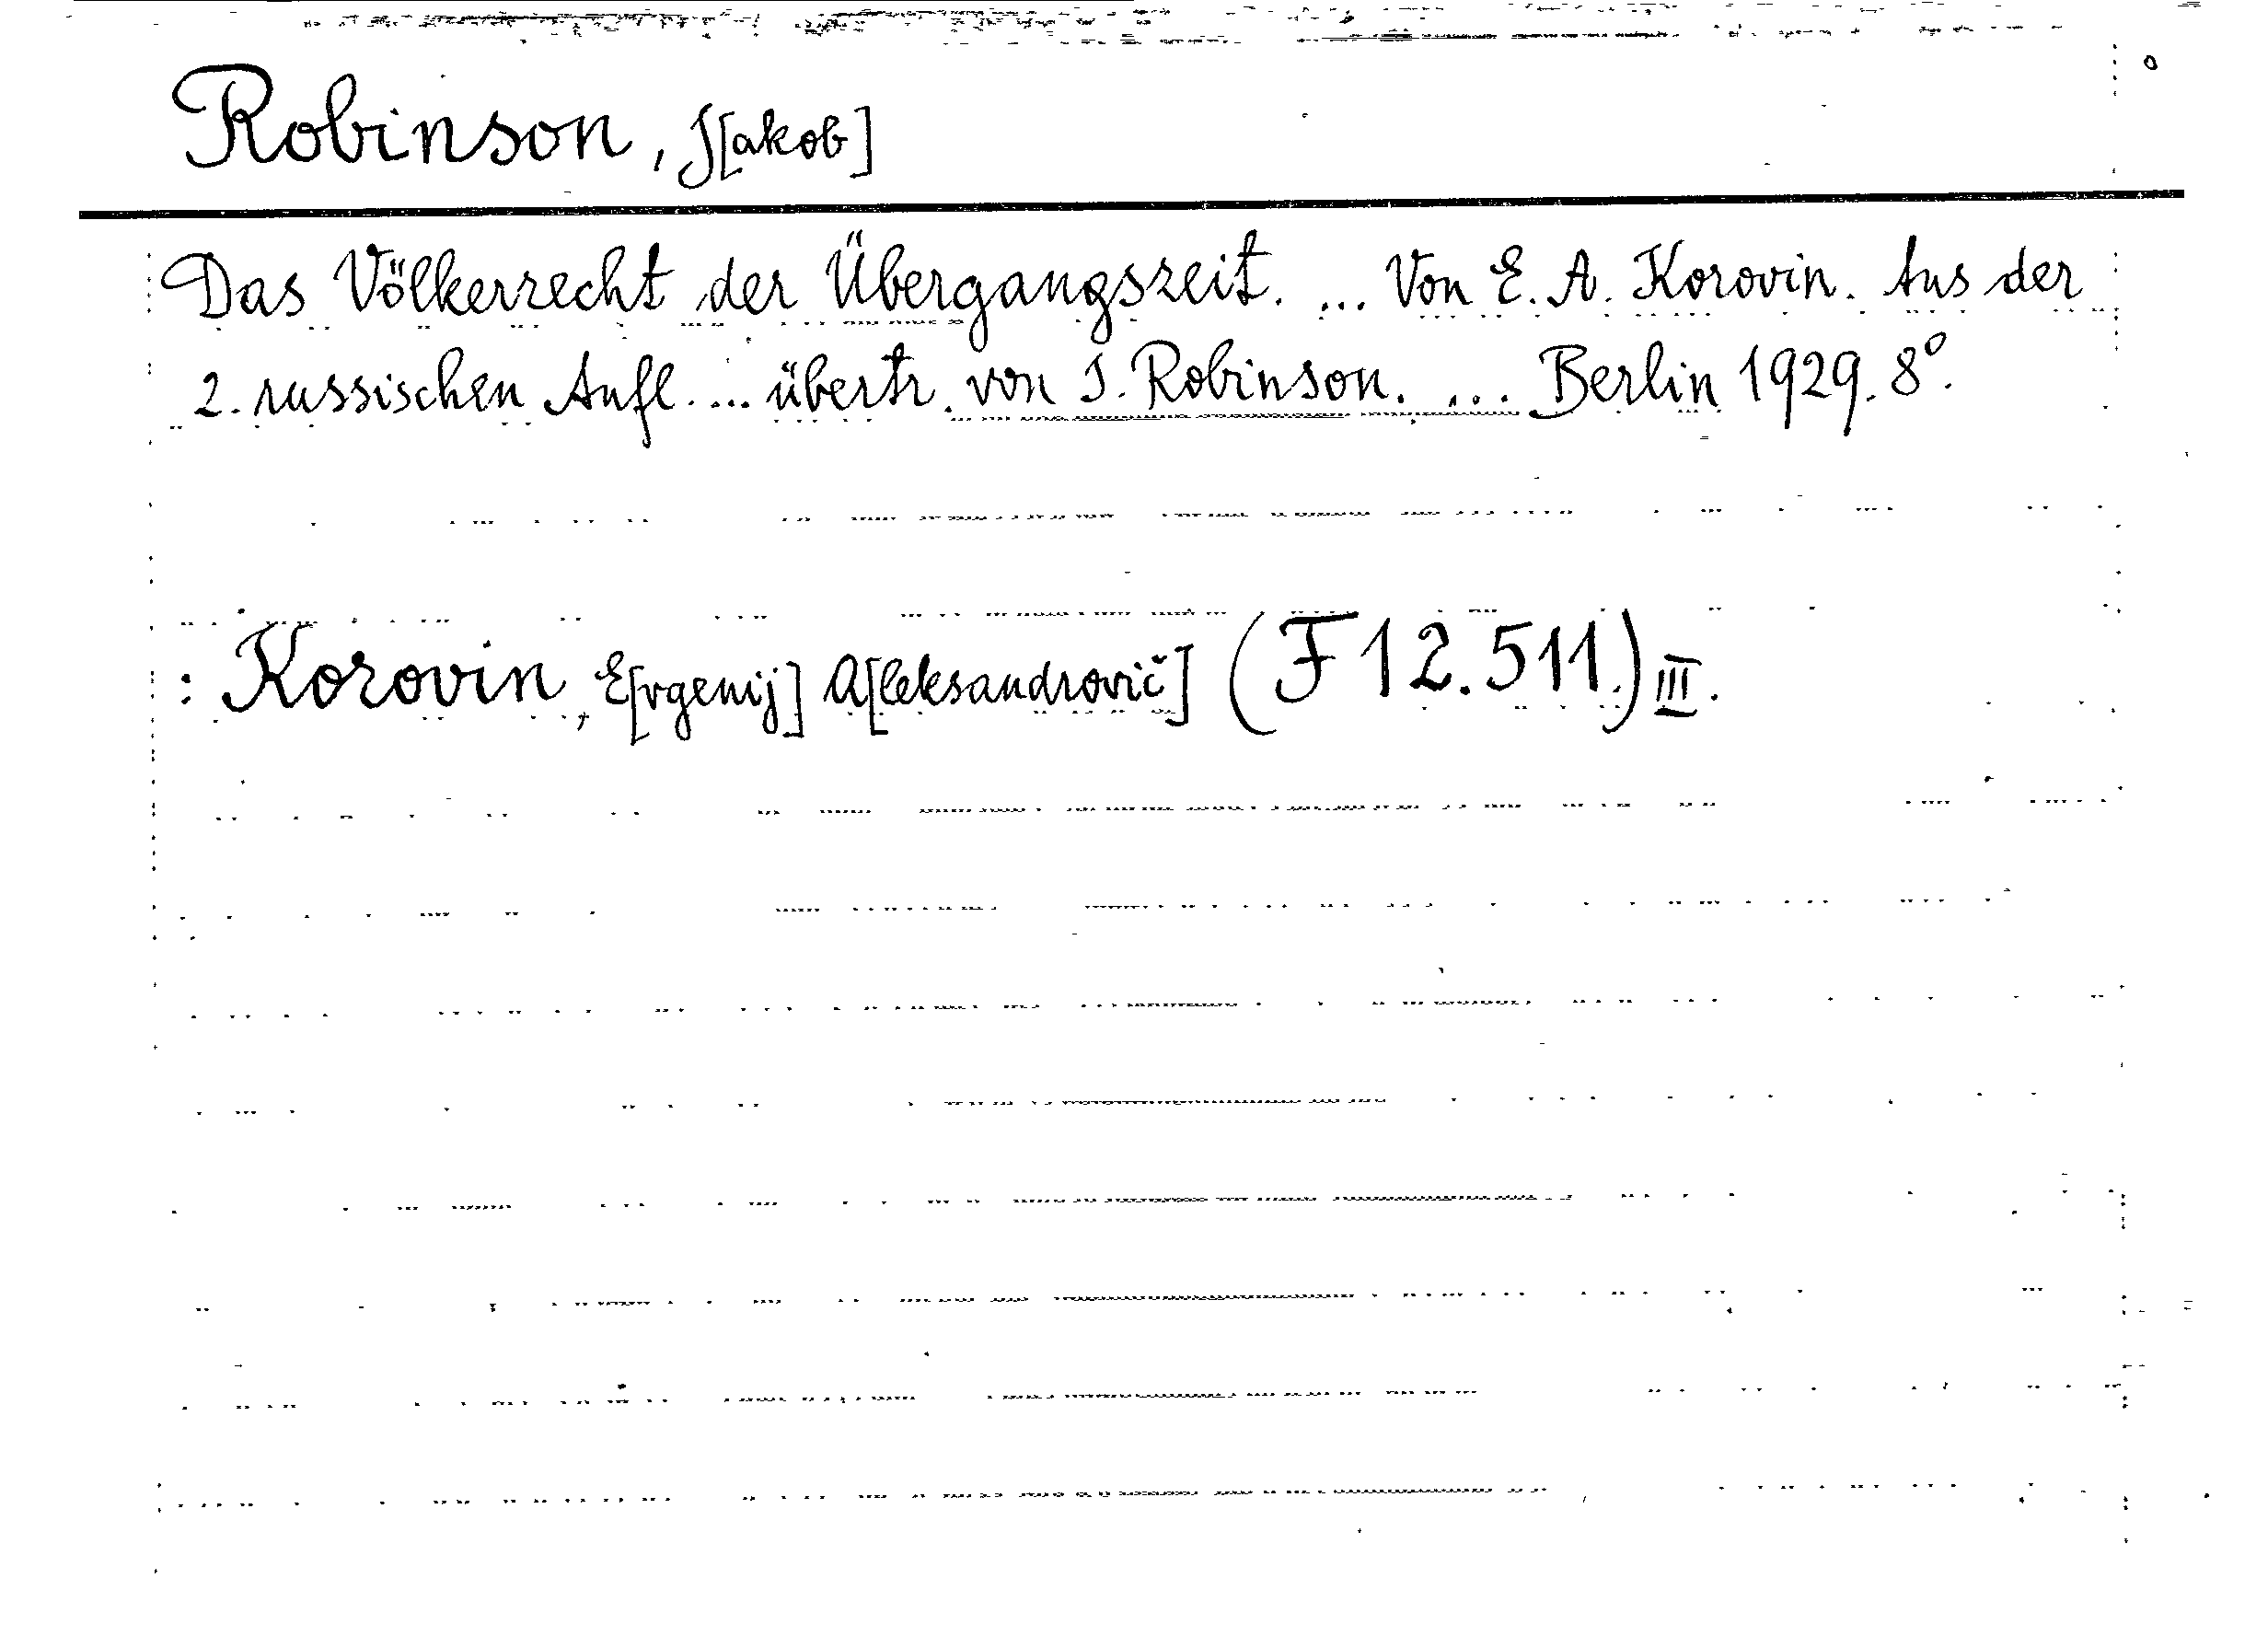 Robinson, J[akob]
Das Völkerrecht der Übergangszeit. ... Von E. A. Korovin. Aus der
2. russischen Aufl. ... übertr. von J. Robinson. ... Berlin 1929. 8°.
: Korovin, E[vgenij] A[leksandrovič] (F 12.511.) III.